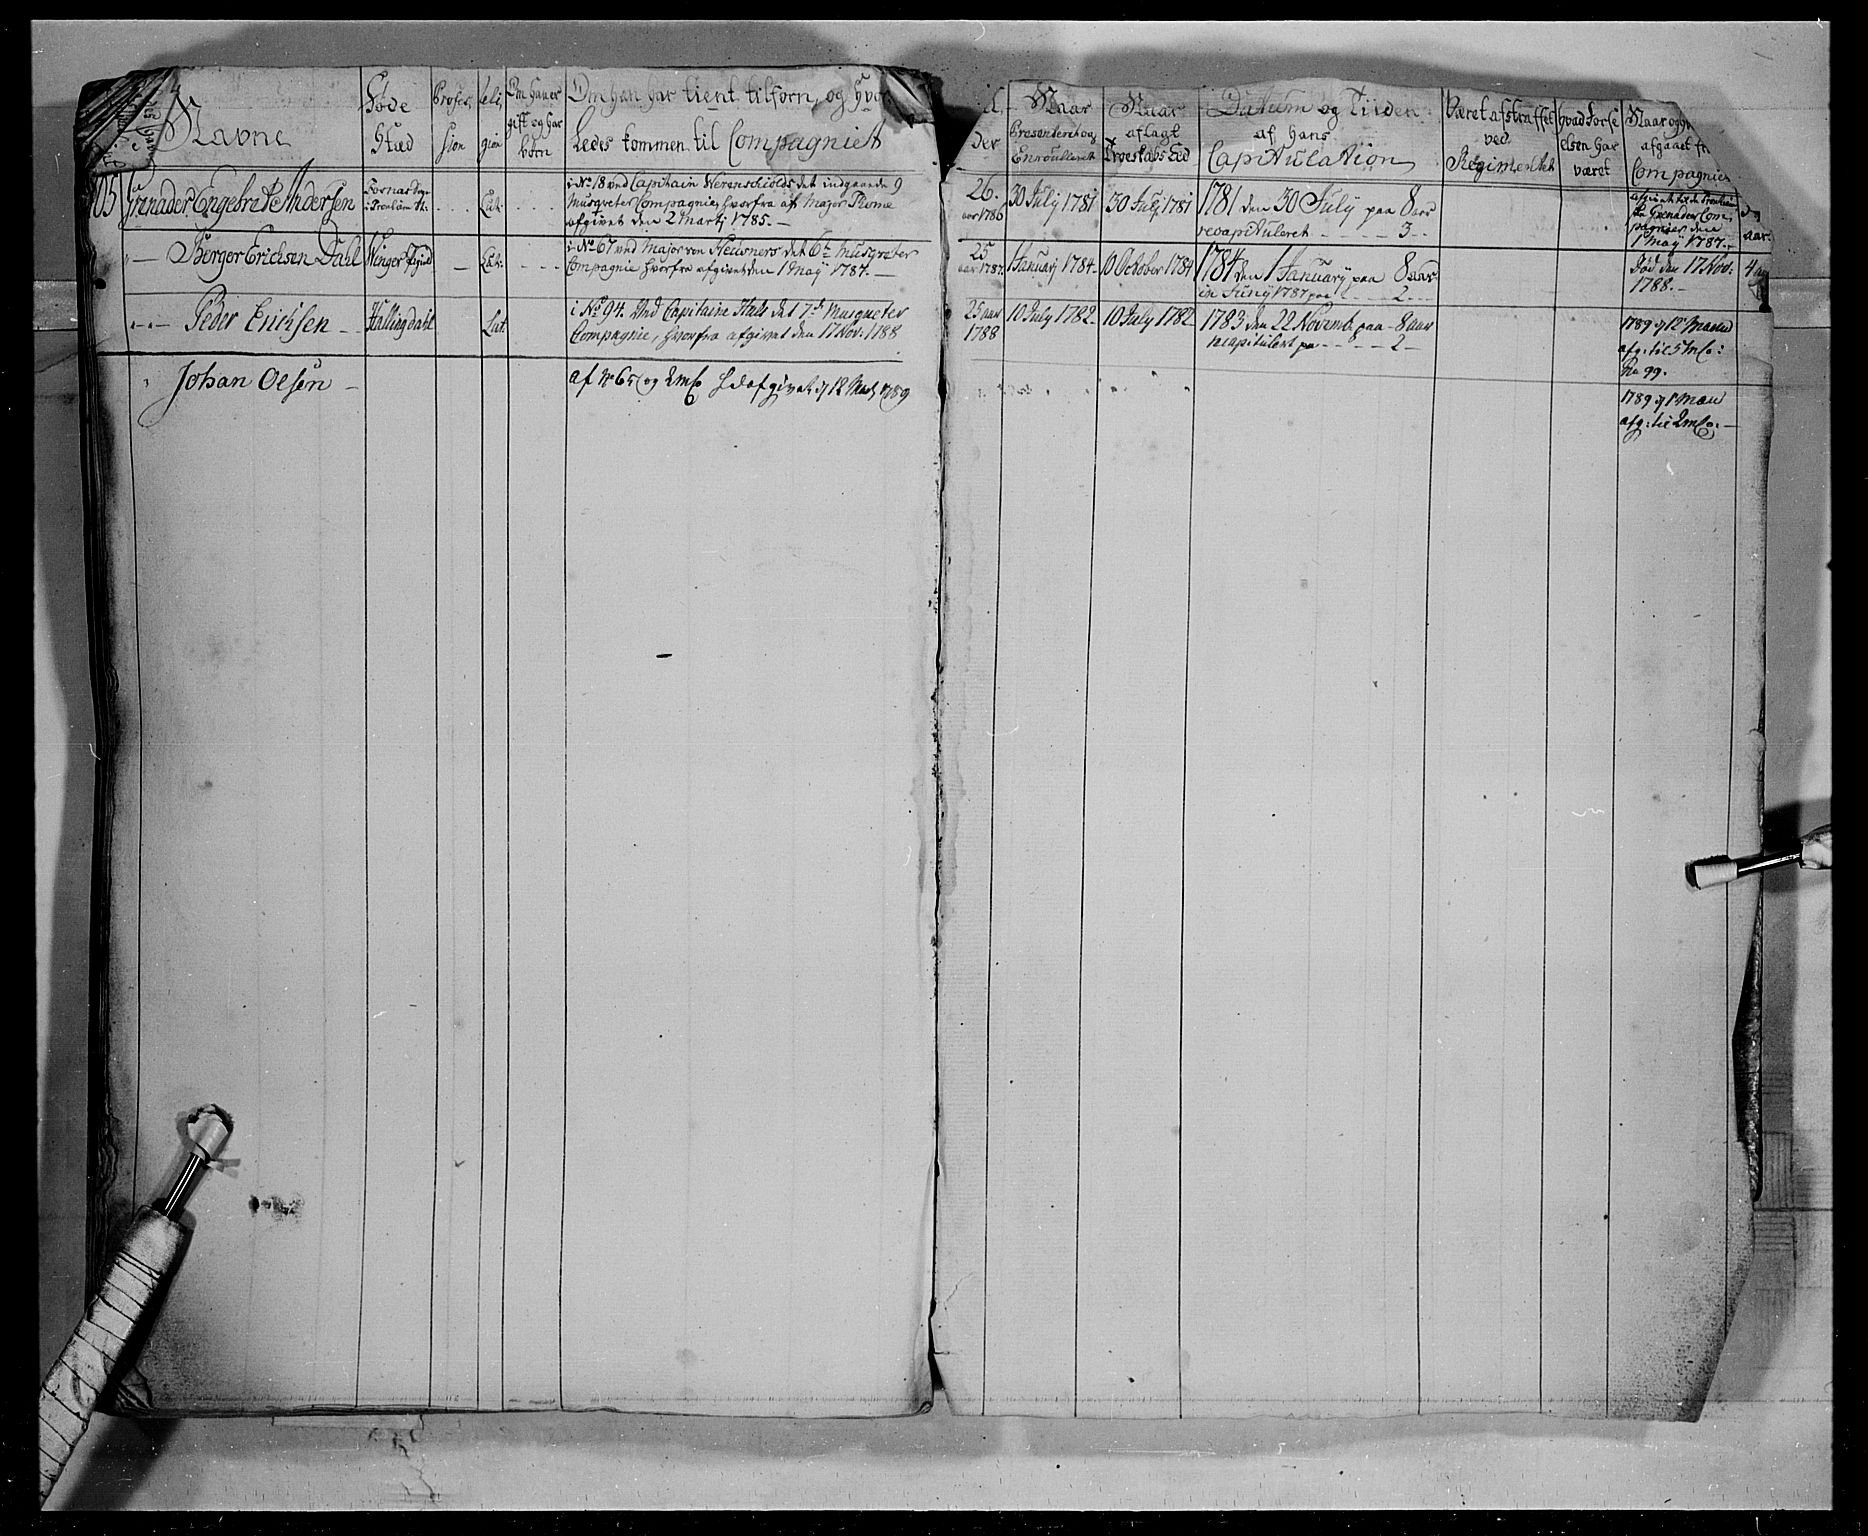 Navne
Føde
Stæd
Profes,
sion
Reli,
gion
Om han er
gift og har
børn
Om han har tient tilforn, og hvor,
Ledes kommen til Compagniet
Al,
der
Naar
Presenteret og
Enroulleret
Naar
aflagt
Troeskabs Eed
Datum og Tiiden
af hans
Capitulation
Været afstraffet
ved
Regimentet
hvad Forse
elsen har
været
Naar og
afgaaet fra
Compagniet
105
Grenader Engebret Andersen
Lut.
i No 18 ved Capitain Werenschiolds det indgaaende 9
Musqueter Compagnie, hvorfra af Major
afgivet den 2 Martj 1785.
26.
aar 1786
30 July 1781
30 July 1781
1781 den 30 July paa 8 aar
recapituleret - - - 3 - -
Grenader Com,
pagnier den
1 Maÿ 1787.
aar.
" — Børger Erichsen Dahl
Winger
Lut.
i No 67 ved Major von det 6te Musqueter
Compagnie hvorfra afgivet den 1 Maÿ 1787.
25
aar 1787.
1 Januarj 1784
10 October 1784
1784 den 1 Januarÿ paa 8 aar
in Junÿ 1787 paa - - - 2 - -
Død den 17 Nov:
1788.
4 aar
" — Peder Erichsen
Hallingdahl
Lut
i No 94. ved Capitaine det 7de Musqueter
Compagnie, hvorfra afgivet den 17 Nov: 1788
25 aar
1788
10 July 1782.
10 July 1782
1783 den 22 Novemb. paa 8 aar
recapitulert paa - - - 2 -
1789 d 12
afg: til 5 m Co:
No 99.
" Johan Olsen
af No 65 og 2 m Co afgivet d 12 1789
1789 d 1
afg: til 2 m Co: